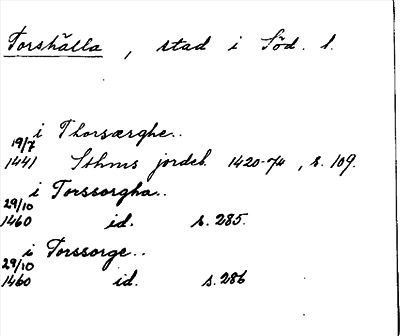 Torshälla, stad i Söd. l.
i Thorsærghe..
19/7
1441 Sthms jordeb. 1420-74, s. 109.
i Torssorgha..
29/10
1460 id. s. 285.
i Torssorge..
29/10
1460 id. s. 286